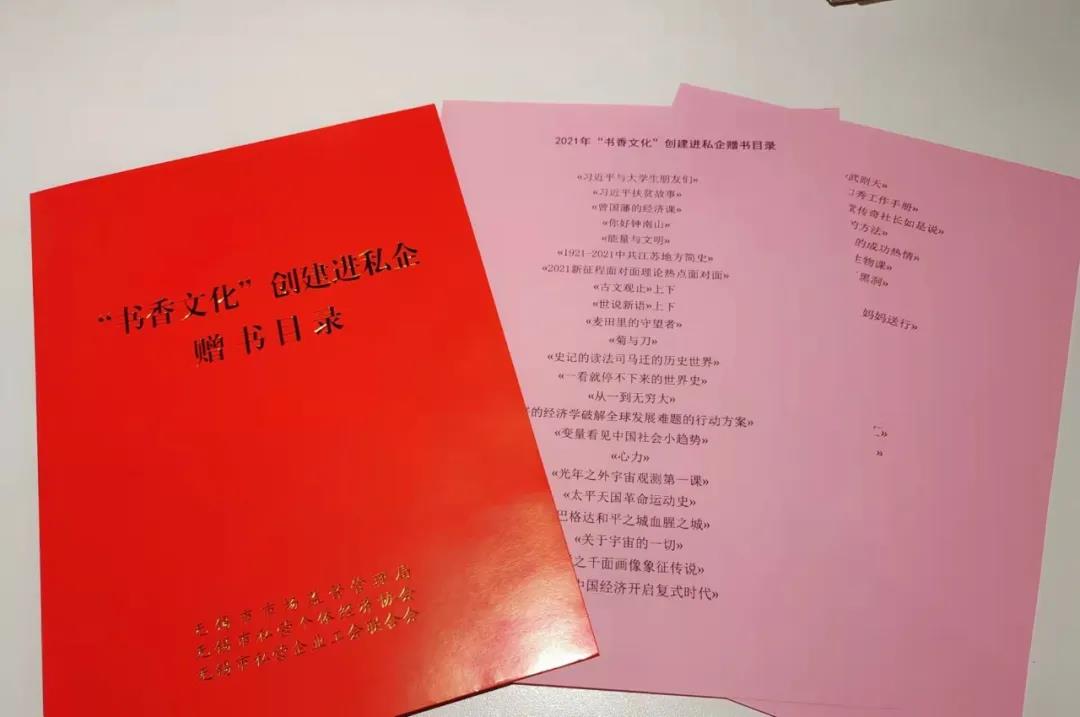 “书香文化”创建进私企
赠书目录
无锡市市场监督管理局
无锡市私营个体经济协会
无锡市私营企业工会联合会
2021年“书香文化”创建进私企赠书目录
«习近平与大学生朋友们»
«习近平扶贫故事»
«曾国藩的经济课»
«你好钟南山»
«能量与文明»
«1921-2021中共江苏地方简史»
«2021新征程面对面理论热点面对面»
«古文观止»上下
«世说新语»上下
«麦田里的守望者»
«菊与刀»
«史记的读法司马迁的历史世界»
«一看就停不下来的世界史»
«从一到无穷大»
的经济学破解全球发展难题的行动方案»
«变量看见中国社会小趋势»
«心力»
«光年之外宇宙观测第一课»
«太平天国革命运动史»
巴格达和平之城血腥之城»
«关于宇宙的一切»
之千面画像象征传说»
中国经济开启复式时代»
武则天»
秀工作手册»
传奇社长如是说»
方法»
的成功热情»
生物课»
黑洞»
妈妈送行»
»
»